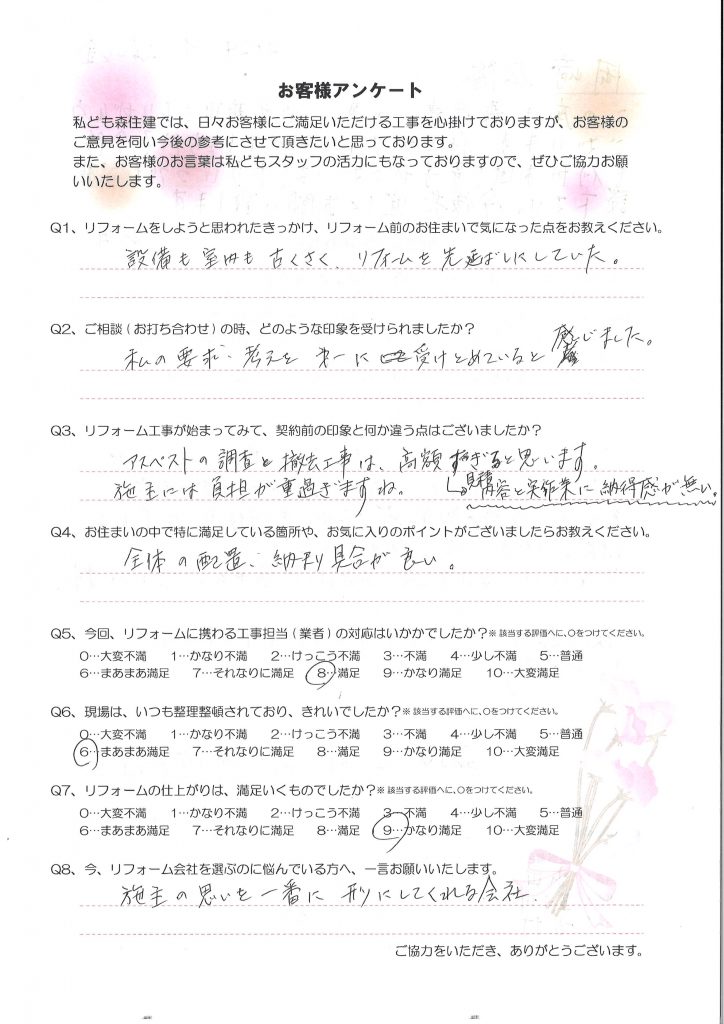 お客様アンケート
私ども森住建では、日々お客様にご満足いただける工事を心掛けておりますが、お客様の
ご意見を伺い今後の参考にさせて頂きたいと思っております。
また、お客様のお言葉は私どもスタッフの活力にもなっておりますので、ぜひご協力お願
いいたします。
Q1、リフォームをしようと思われたきっかけ、リフォーム前のお住まいで気になった点をお教えください。
設備も室内も古くさく、リフォームを先延ばしにしていた。
Q2、ご相談(お打ち合わせ)の時、どのような印象を受けられましたか?
私の要求・考えを第一に受けとめていると感じました。
Q3、リフォーム工事が始まってみて、契約前の印象と何か違う点はございましたか?
アスベストの調査と撤去工事は、高額すぎると思います。
施主には負担が重過ぎますね。 見積内容と実作業に納得感が無い。
Q4、お住まいの中で特に満足している箇所や、お気に入りのポイントがございましたらお教えください。
全体の配置、納まり具合が良い。
Q5、今回、リフォームに携わる工事担当(業者)の対応はいかかでしたか?※該当する評価へに、○をつけてください。
0…大変不満 1…かなり不満 2…けっこう不満 3…不満 4…少し不満 5…普通
6…まあまあ満足 7…それなりに満足 8…満足 9…かなり満足 10…大変満足
Q6、現場は、いつも整理整頓されており、きれいでしたか?※該当する評価へに、○をつけてください。
0…大変不満 1…かなり不満 2…けっこう不満 3…不満 4…少し不満 5…普通
6…まあまあ満足 7…それなりに満足 8…満足 9…かなり満足 10…大変満足
Q7、リフォームの仕上がりは、満足いくものでしたか?※該当する評価へに、○をつけてください。
0…大変不満 1…かなり不満 2…けっこう不満 3…不満 4…少し不満 5…普通
6…まあまあ満足 7…それなりに満足 8…満足 9…かなり満足 10…大変満足
Q8、今、リフォーム会社を選ぶのに悩んでいる方へ、一言お願いいたします。
施主の思いを一番に形にしてくれる会社.
ご協力をいただき、ありがとうございます。